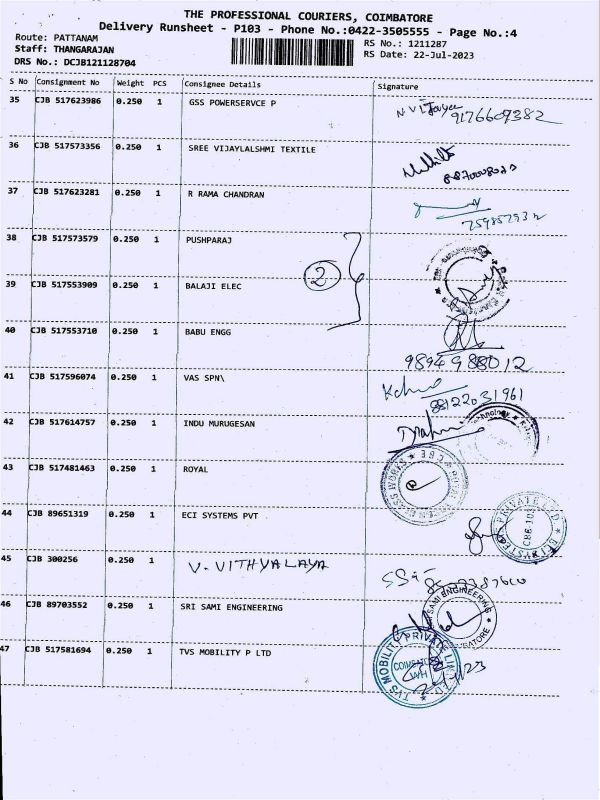 THE PROFESSIONAL COURIERS, COIMBATORE
Delivery Runsheet - P103 - Phone No.:0422-3505555 - Page No.:4
Route: PATTANAM
RS No.: 1211287
Staff: THANGARAJAN
RS Date: 22-Jul-2023
DRS No.: DCJB121128704
S No Consignment No Weight PCS Consignee Details Signature
35 CJB 517623986 0.250 1 GSS POWERSERVCE P 9176609382
36 CJB 517573356 0.250 1 SREE VIJAYLALSHMI TEXTILE
37 CJB 517623281 0.250 1 R RAMA CHANDRAN
38 CJB 517573579 0.250 1 PUSHPARAJ
2
39 CJB 517553909 0.250 1 BALAJI ELEC
40 CJB 517553710 0.250 1 BABU ENGG
9894988012
41 CJB 517596074 0.250 1 VAS SPN\ 88122031961
42 CJB 517614757 0.250 1 INDU MURUGESAN
43 CJB 517481463 0.250 1 ROYAL
44 CJB 89651319 0.250 1 ECI SYSTEMS PVT
45 CJB 300256 0.250 1 V. VITHYALAYA
46 CJB 89703552 0.250 1 SRI SAMI ENGINEERING
SAMI ENGINEERING
47 CJB 517581694 0.250 1 TVS MOBILITY P LTD
TVS MOBILITY PRIVATE LIMITED